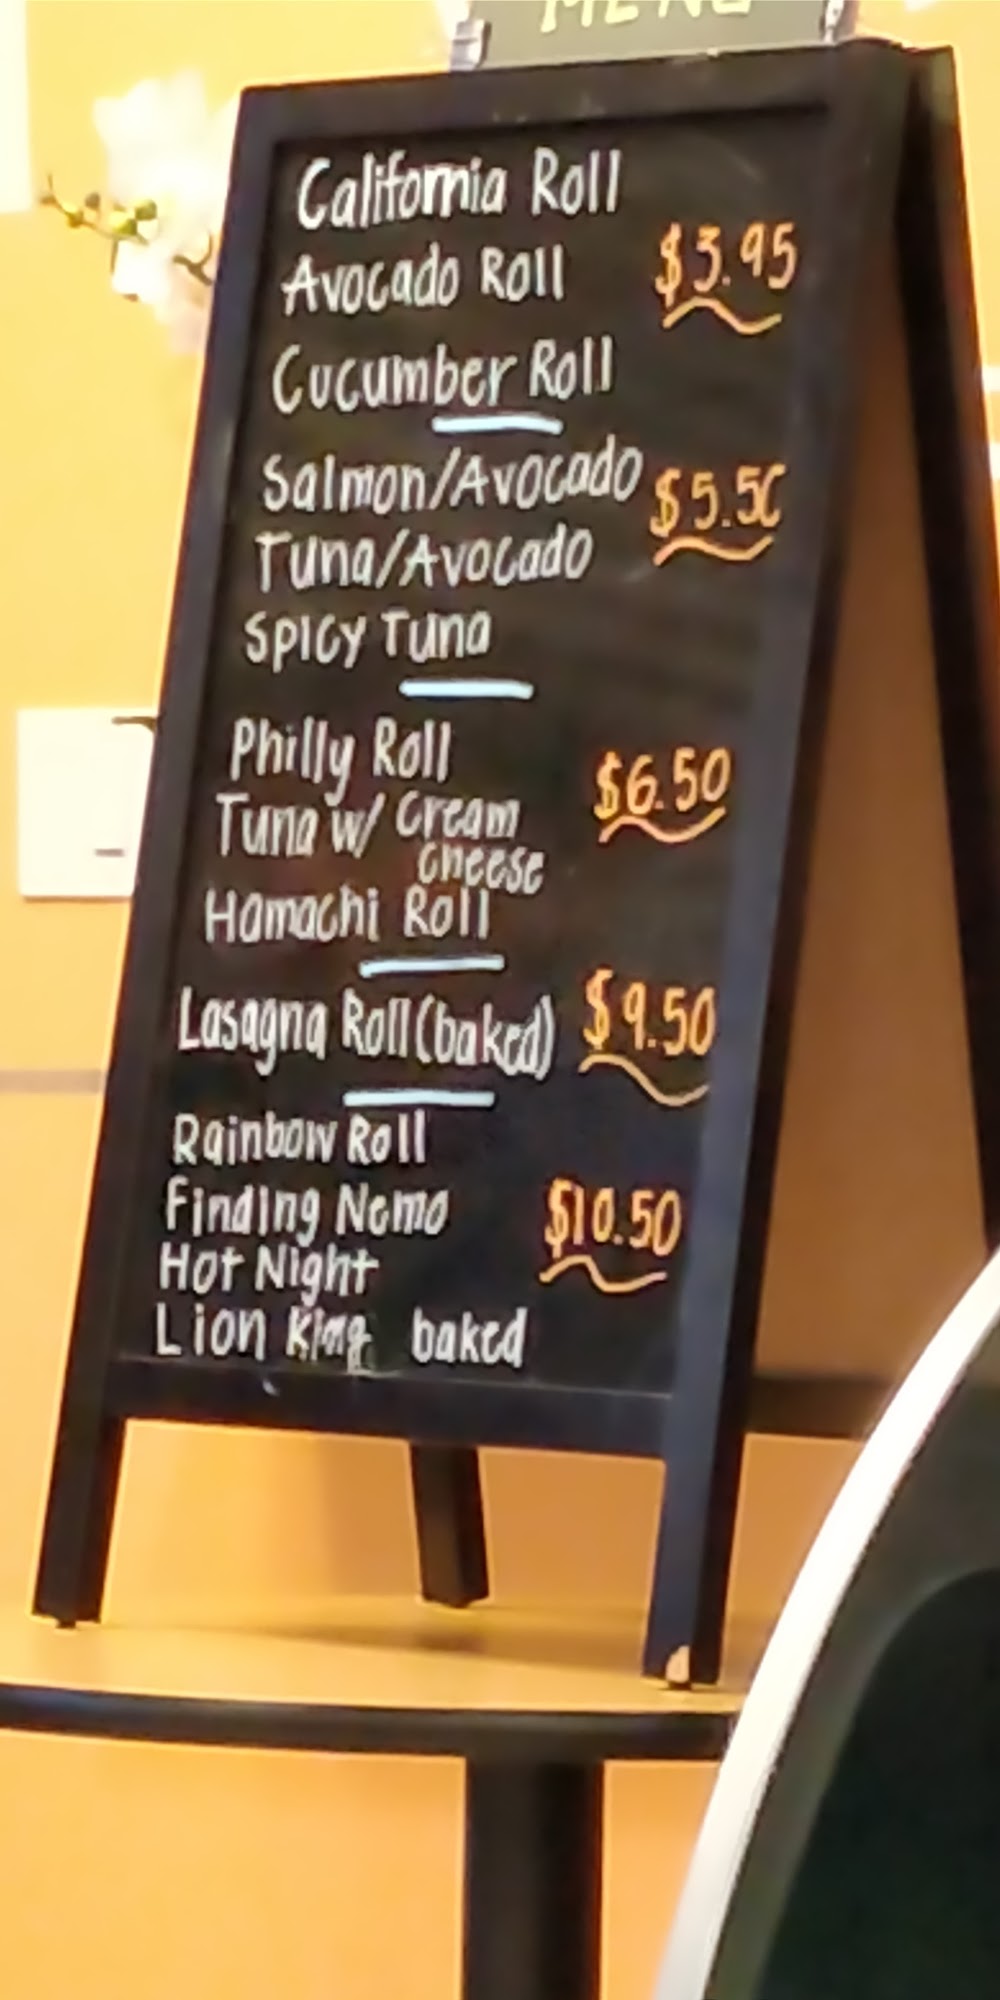 MENU
California Roll
Avocado Roll $3.95
Cucumber Roll
Salmon/Avocado $5.50
Tuna/Avocado
Spicy Tuna
Philly Roll $6.50
Tuna w/ cream
cheese
Hamachi Roll
Lasagna Roll (baked) $9.50
Rainbow Roll
Finding Nemo $10.50
Hot Night
Lion King baked